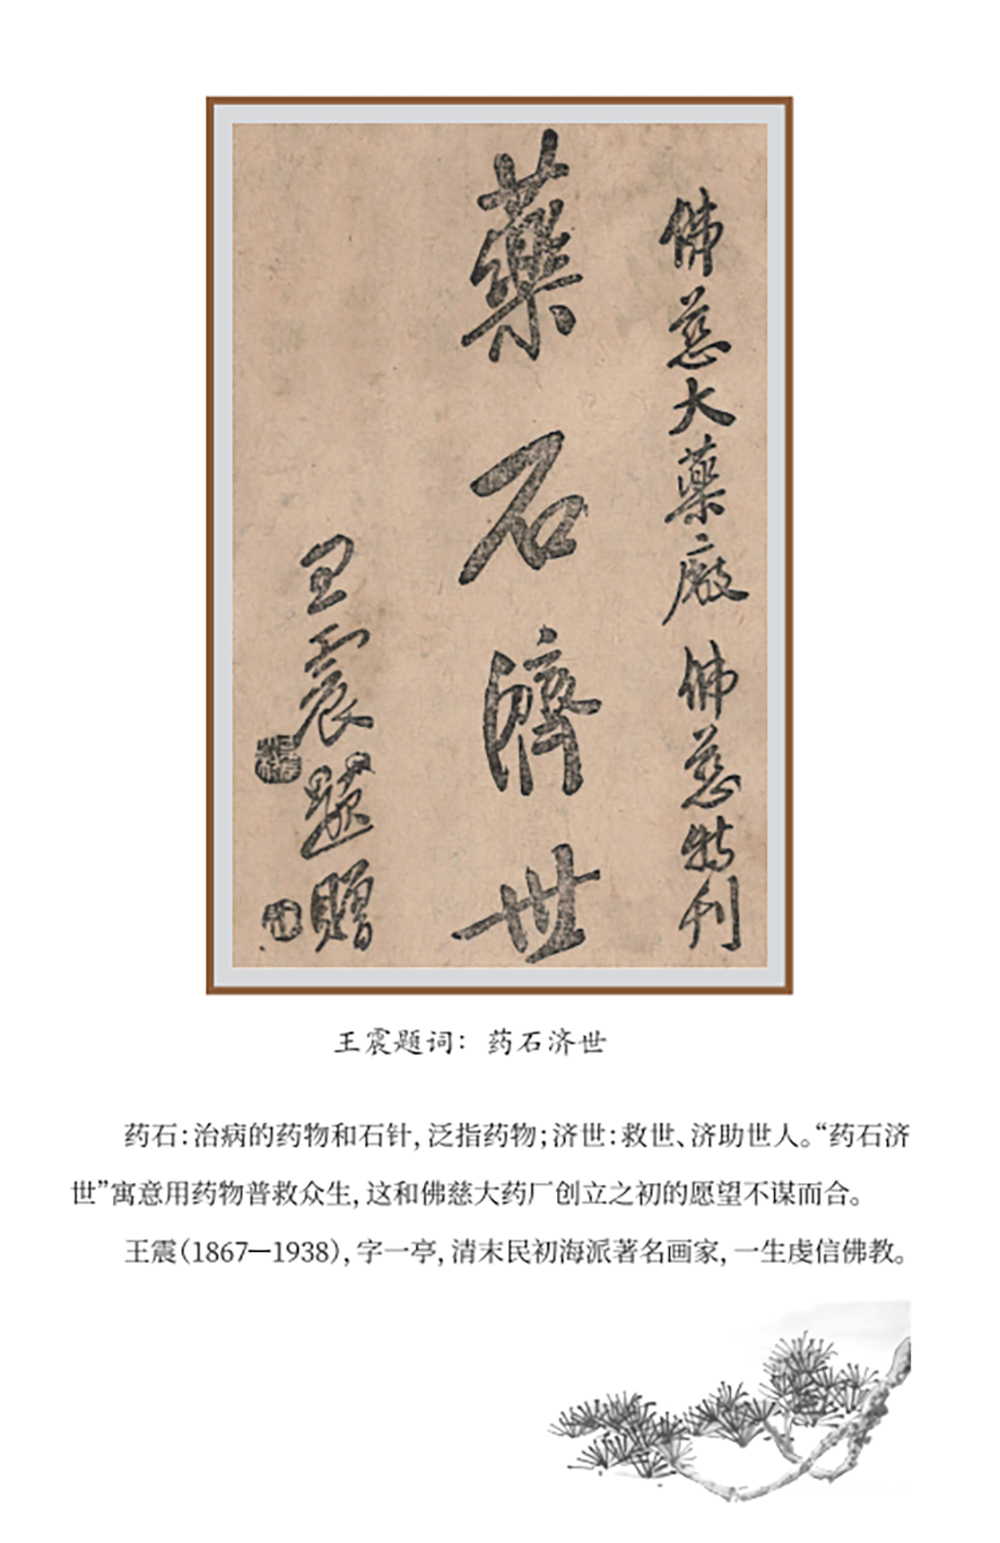 佛慈大藥廠 佛慈特刊
藥石濟世
王震題贈
王震题词：药石济世
药石：治病的药物和石针，泛指药物；济世：救世、济助世人。“药石济
世”寓意用药物普救众生，这和佛慈大药厂创立之初的愿望不谋而合。
王震（1867—1938），字一亭，清末民初海派著名画家，一生虔信佛教。